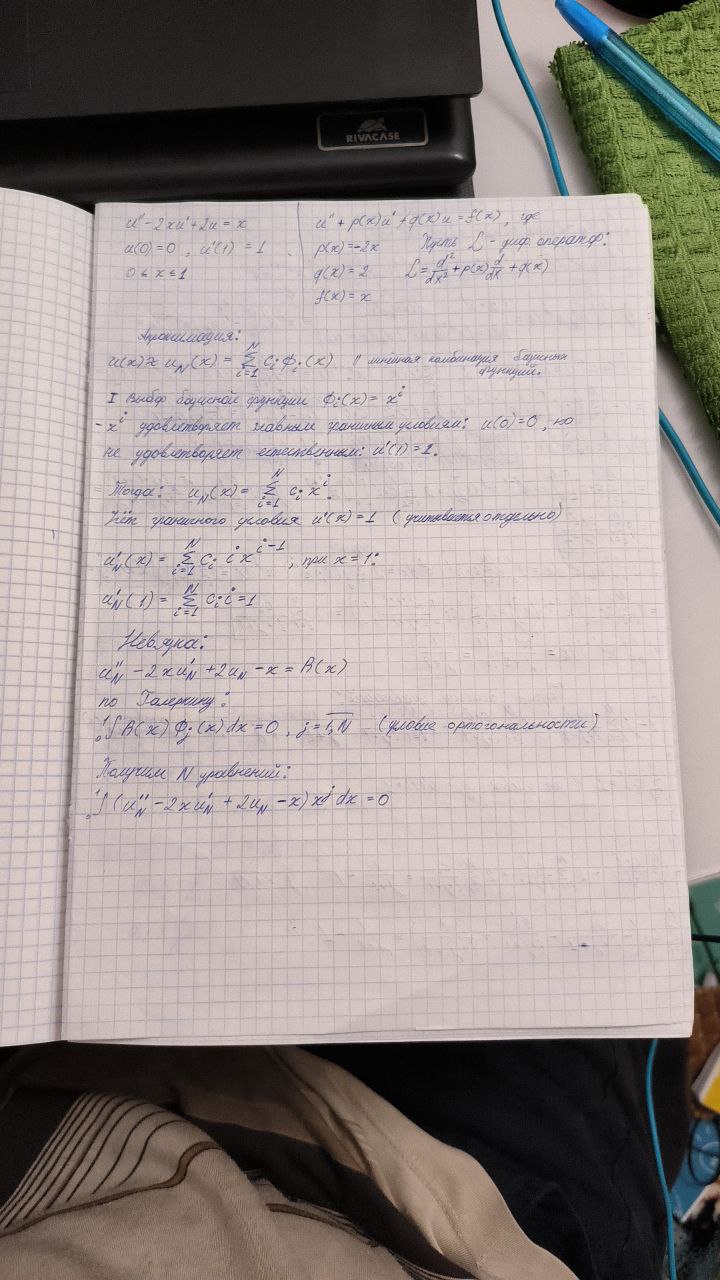 RIVACASE
u'' - 2xu' + 2u = x
u(0) = 0 , u'(1) = 1
0 ≤ x ≤ 1
u'' + p(x)u' + q(x)u = f(x) , где
p(x) = -2x Пусть L - диф. оператор:
q(x) = 2 L = d²/dx² + p(x) d/dx + q(x)
f(x) = x
Апроксимация:
u(x) ≈ u_N(x) = Σ_{i=1}^{N} c_i ϕ_i(x) // линейная комбинация базисных
функций.
I Выбор базисной функции ϕ_i(x) = x^i
- x^i удовлетворяет главным граничным условиям: u(0) = 0 , но
не удовлетворяет естественным: u'(1) = 1.
Тогда: u_N(x) = Σ_{i=1}^{N} c_i x^i.
Учёт граничного условия u'(x) = 1 (учитывается отдельно)
u'_N(x) = Σ_{i=1}^{N} c_i i x^{i-1} , при x = 1:
u'_N(1) = Σ_{i=1}^{N} c_i i = 1
Невязка:
u''_N - 2xu'_N + 2u_N - x = R(x)
по Галеркину:
₀¹∫ R(x) ϕ_j(x) dx = 0 , j = \overline{1, N} (условие ортогональности)
Получим N уравнений:
₀¹∫ (u''_N - 2xu'_N + 2u_N - x) x^j dx = 0